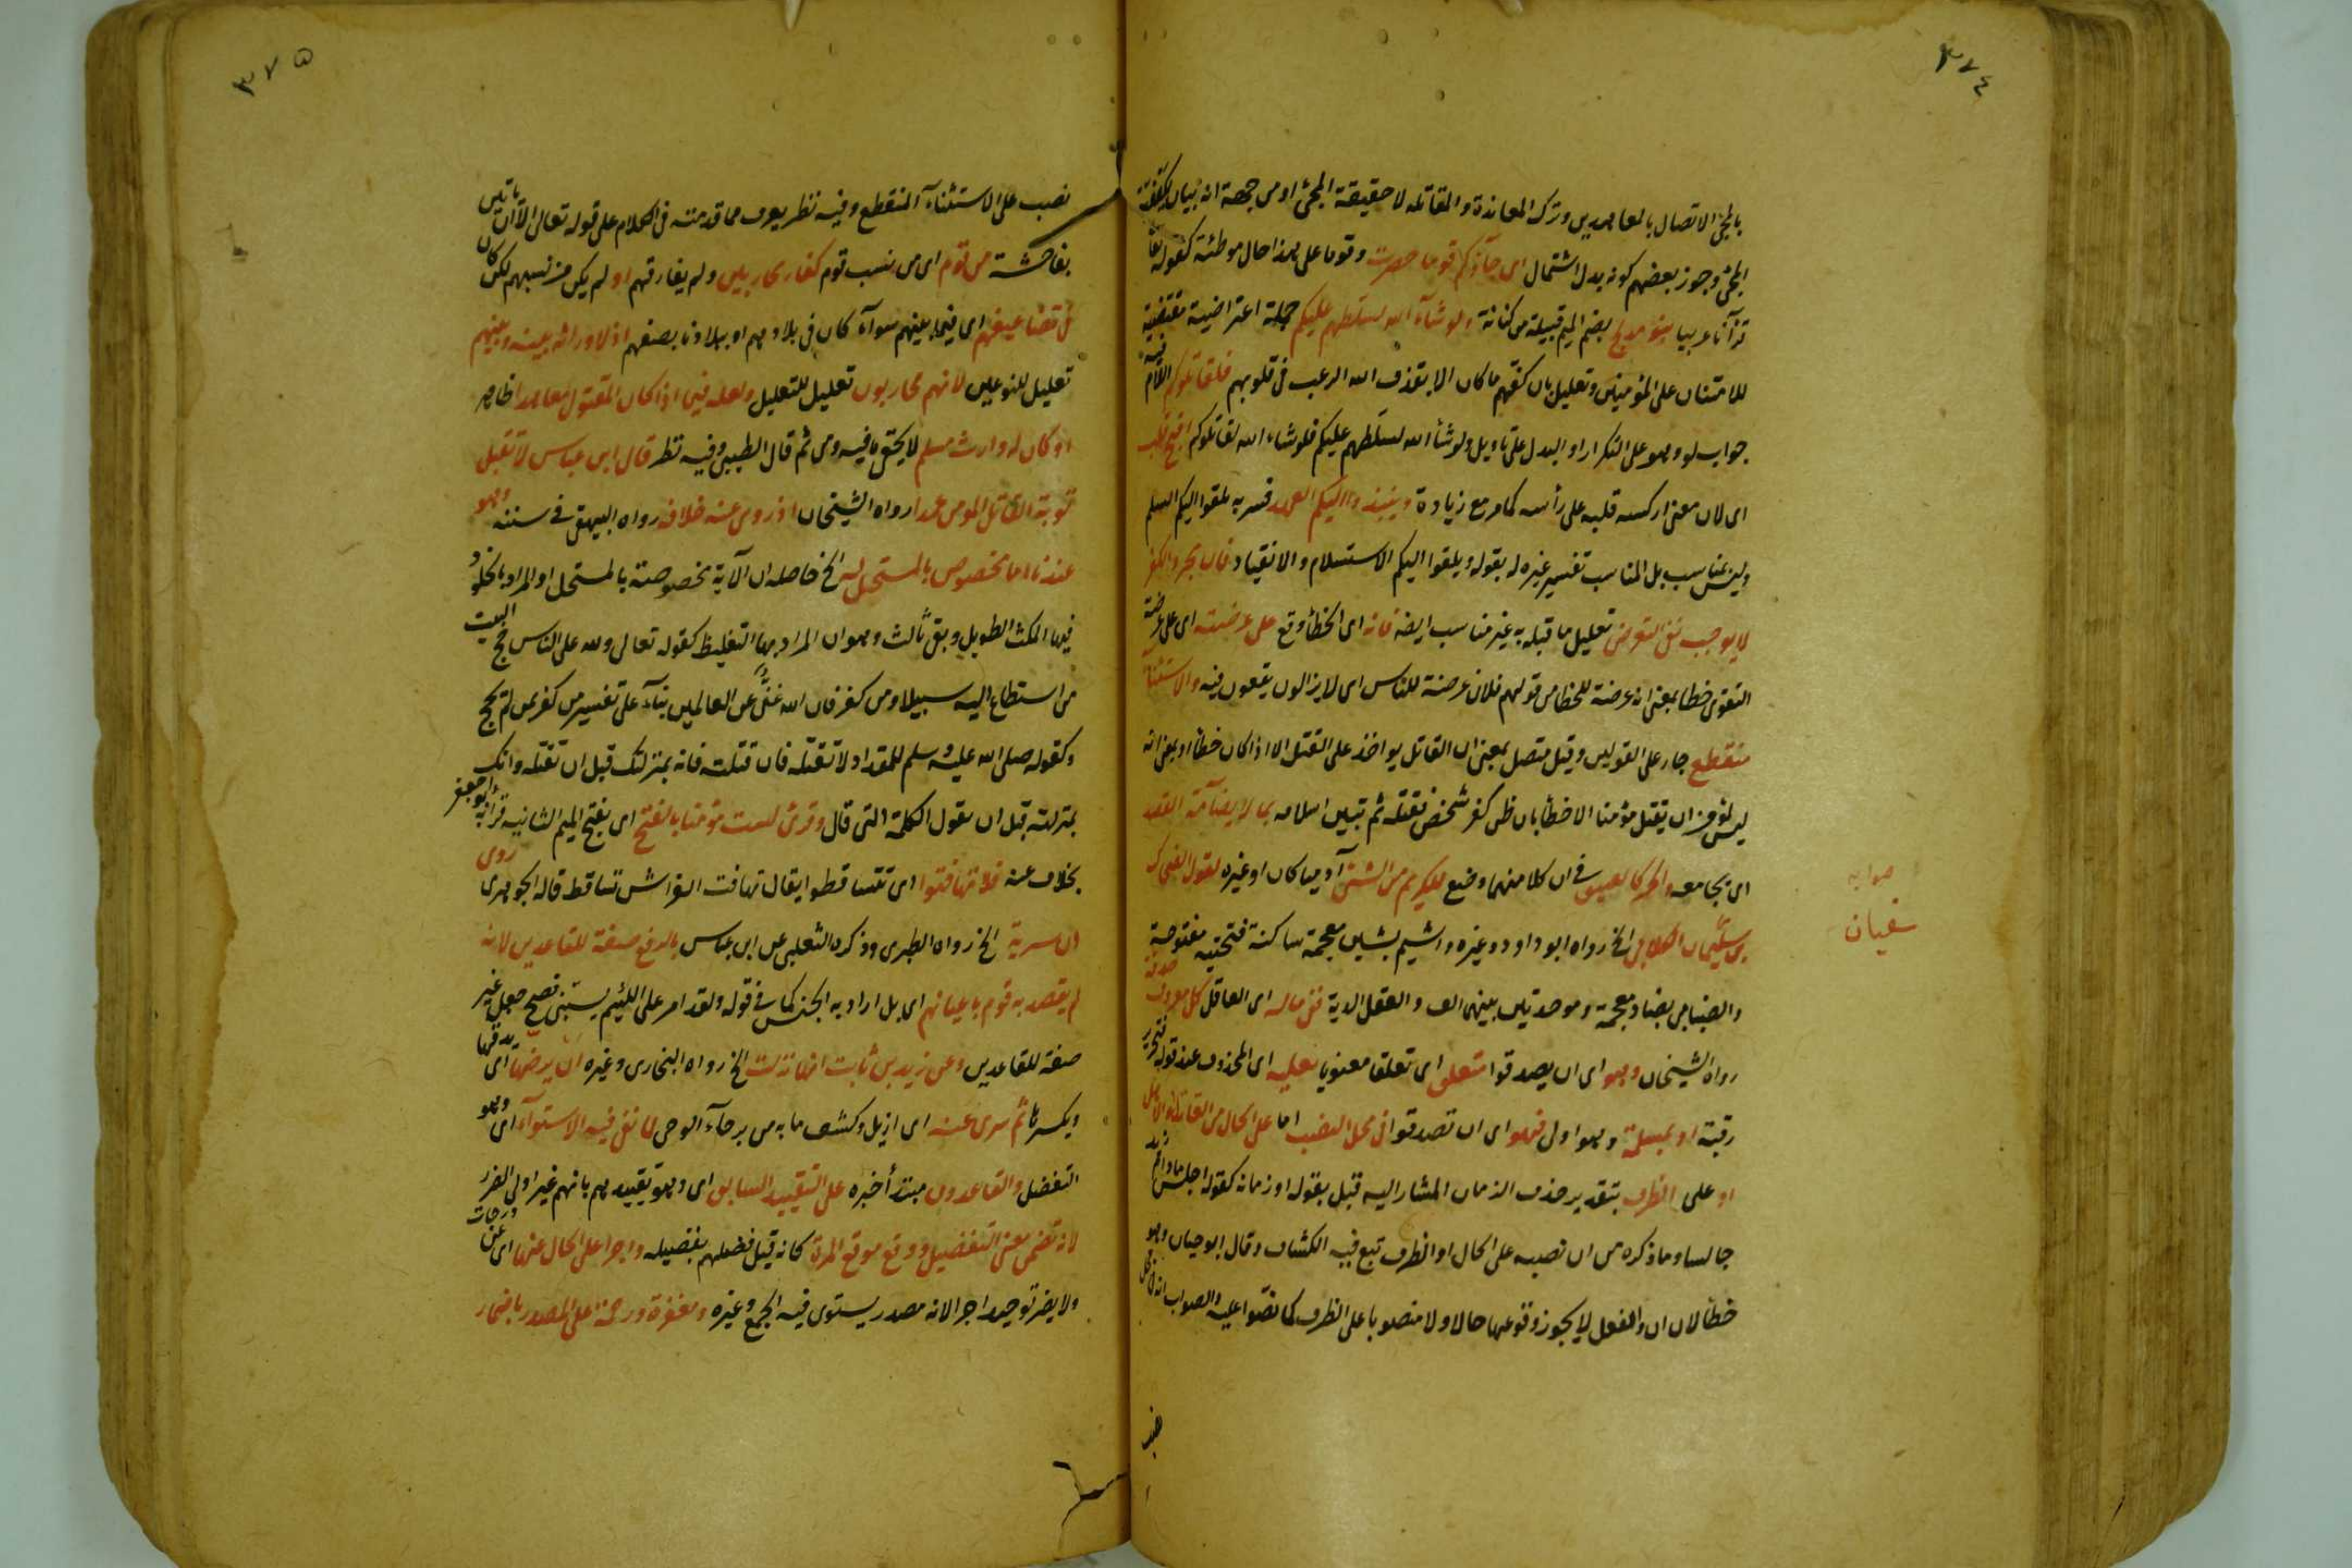 ٣٧٤
بالمجئ الاتصال بالمعاهدين وترك المعاندة والمقاتلة لا حقيقة المجئ او من جهة انه بيان لكيفية
المجئ وجوز بعضهم كونه بدل اشتمال اى جآؤكم قوما حصرت وقوما على هذا حال موطئة كقوله تعا
قرآنا عربيا بنو مدلج بضم الميم قبيلة من كنانة ولو شآء الله لسلطهم عليكم جملة اعتراضية مقتضية
للامتنان على المؤمنين وتعليل بان كفهم ما كان الا بقذف الله الرعب فى قلوبهم فلقاتلوكم اللام فيه
جواب لو وهو على التكرار او البدل على تاويل ولو شآء الله لسلطهم عليكم فلو شاء الله لقاتلوكم اقبح قلب
اى لان معنى اركسه قلبه على رأسه كما مر مع زيادة وينبذوا اليكم العهد فسر به يلقوا اليكم السلم
وليس بمناسب بل المناسب تفسير غيره له بقوله ويلقوا اليكم الاستسلام والانقياد فان مجرد الكف
لا يوجب نفى التعرض تعليل ما قبله به غير مناسب ايضا فانه اى الخطأ وقع على عرضته اى على عرضة
التقوى خطا بمعنى انه عرضة للخطا من قولهم فلان عرضة للناس اى لا يزالون يقعون فيه والاستثنآء
منقطع جار على القولين وقيل متصل بمعنى ان القاتل يواخذ على القتل الا اذا كان خطأ او بمعنى انه
ليس لمؤمن ان يقتل مؤمنا الا خطأ بان ظن كفر شخص فقتله ثم تبين اسلامه بما لا يضآمه القصد
اى يجامعه والحر كالعتيق فى ان كلا منهما وضع للكريم من الشئ آدميا كان او غيره لقول الضحاك
بن سليمان الكلابى الخ رواه ابو داود وغيره واشيم بشين معجمة ساكنة فتحتية مفتوحة
والضبابى بضاد معجمة وموحدتين بينهما الف والعقل الدية فى ماله اى العاقل كل معروف صدقة
رواه الشيخان وهو اى ان يصدقوا متعلق اى تعلقا معنويا بعليه اى المحذوف عند قوله فتحرير
رقبة او بمسلمة وهو اولى فهو اى ان تصدقوا فى محل النصب اما على الحال من القاتل او الاهل
او على الظرف بتقدير حذف الزمان المشار اليه قبل بقوله او زمانه كقوله اجلس ما دام زيد
جالسا وما ذكره من ان نصبه على الحال او الظرف تبع فيه الكشاف وقال ابو حيان وهو
خطأ لان ان والفعل لا يجوز وقوعها حالا ولا منصوبا على الظرف كما نصوا عليه والصواب انه فى محل
نصب
صوابه
سفيان
٣٧٥
نصب على الاستثنآء المنقطع وفيه نظر يعرف مما قدمته فى الكلام على قوله تعالى الا ان ياتين
بفاحشة من قوم اى من نسب قوم كفار محاربين ولم يفارقهم او لم يكن من نسبهم لكن كان
فى تضاعيفهم اى فيما بينهم سوآء كان فى بلادهم او ببلادنا بصفهم اذ لا وراثة بينه وبينهم
تعليل للنوعين لانهم محاربون تعليل للتعليل ولعله فيما اذا كان المقتول معاهدا ظاهر
او كان له وارث مسلم لا يخفى ما فيه ومن ثم قال الطيبى وفيه نظر قال ابن عباس لا تقبل
توبة القاتل المومن عمدا رواه الشيخان اذ روى عنه خلافه رواه البيهقى فى سننه وهو
عندنا اما مخصوص بالمستحل له الخ حاصله ان الآية مخصوصة بالمستحل او المراد بالخلود
فيها المكث الطويل وبقى ثالث وهو ان المراد بها التغليظ كقوله تعالى ولله على الناس حج البيت
من استطاع اليه سبيلا ومن كفر فان الله غنى عن العالمين بنآء على تفسير من كفر بمن لم يحج
وكقوله صلى الله عليه وسلم للمقداد لا تقتله فان قتلته فانه بمنزلتك قبل ان تقتله وانك
بمنزلته قبل ان يقول الكلمة التى قال وقرئ لست مؤمنا بالفتح اى بفتح الميم الثانية قرأ به ابو جعفر
بخلاف عنه فلا تهافتوا اى تتساقطوا يقال تهافت الفراش تساقط قاله الجوهرى روى
ان سرية الخ رواه الطبرى وذكره الثعلبى عن ابن عباس بالرفع صفة للقاعدين لانه
لم يقصد به قوم باعيانهم اى بل اراد به الجنس كما فى قوله ولقد امر على اللئيم يسبنى فصح جعل غير
صفة للقاعدين وعن زيد بن ثابت انها نزلت الخ رواه البخارى وغيره ان يرضها اى يدقها
ويكسرها ثم سرى عنه اى ازيل وكشف ما به من برحآء الوحى لما نفى فيه الاستوآء اى وهو
التفضل والقاعدون مبتدأ خبره على التقييد السابق اى وهو تقييدهم بانهم غير اولى الضرر
لانه تضمن معنى التفضيل ووقع موقع المرة كانه قيل فضلهم تفضيله واجرا على الحال عنها اى عن درجات
ولا يضر توحيد اجرا لانه مصدر يستوى فيه الجمع وغيره ومغفرة ورحمة على المصدر باضمار